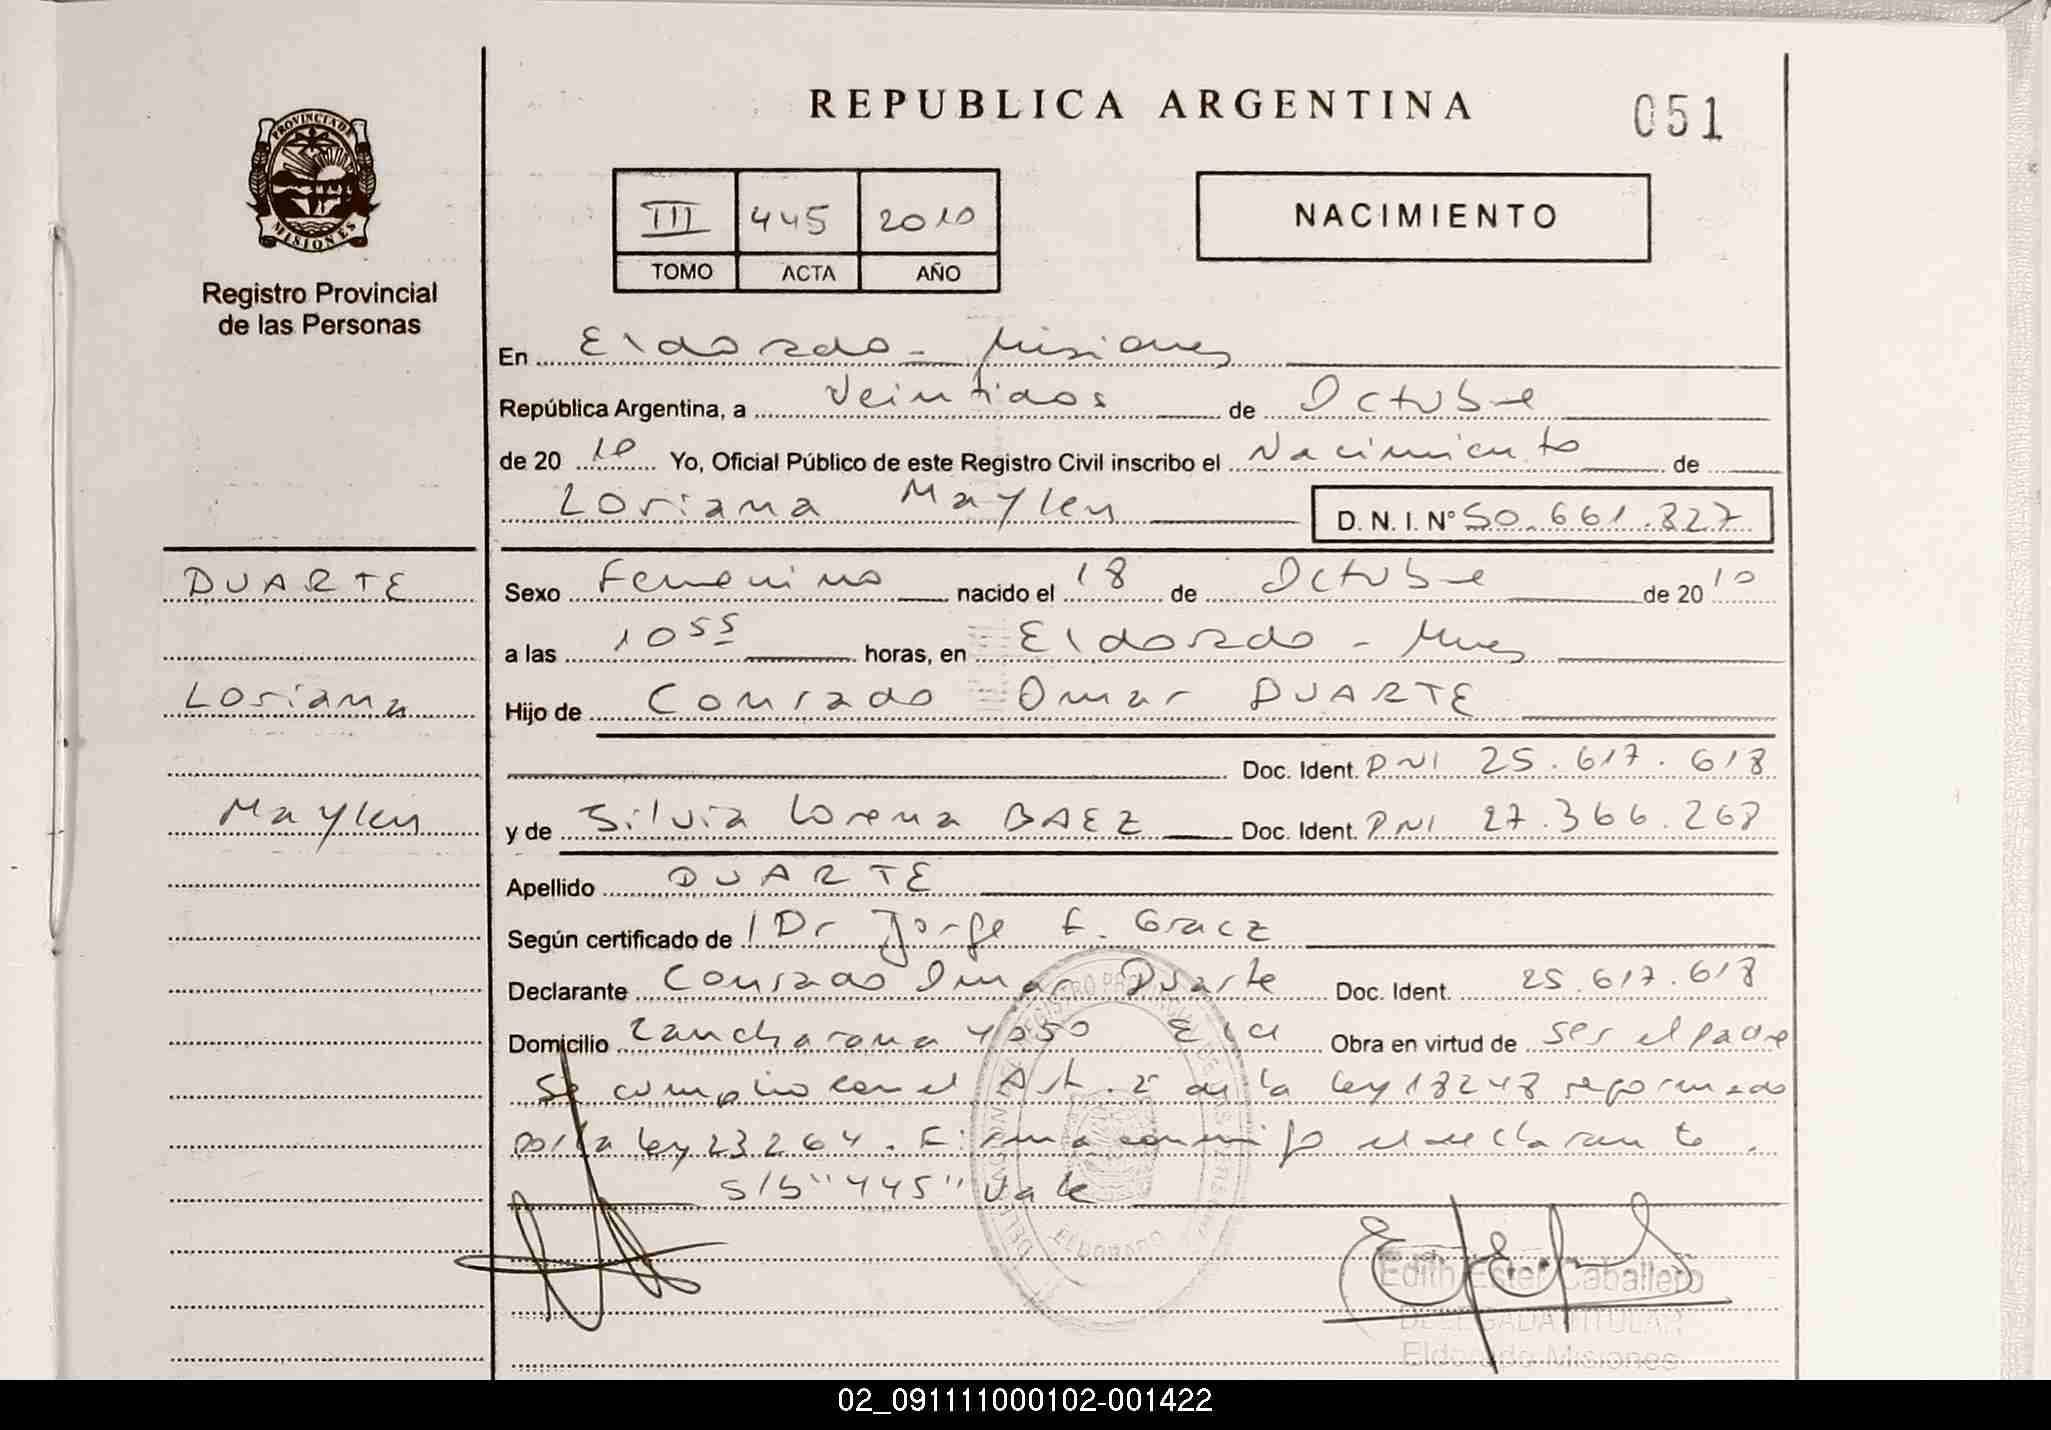 REPUBLICA ARGENTINA
051
PROVINCIA DE
MISIONES
Registro Provincial
de las Personas
III 445 2010
TOMO ACTA AÑO
NACIMIENTO
En Eldorado - Misiones
República Argentina, a Veintidos de Octubre
de 20 10 Yo, Oficial Público de este Registro Civil inscribo el Nacimiento de
Loriana Maylen D. N. I. N° 50.661.827
DUARTE
Loriana
Maylen
Sexo Femenino nacido el 18 de Octubre de 20 10
a las 10 55 horas, en Eldorado - Mnes
Hijo de Conrado Omar DUARTE
Doc. Ident. DNI 25.617.618
y de Silvia Lorena BAEZ Doc. Ident. DNI 27.366.268
Apellido DUARTE
Según certificado de Dr Jorge E. Gracz
Declarante Conrado Omar Duarte Doc. Ident. 25.617.618
Domicilio 4050 Obra en virtud de ser el padre
Se cumplio con el Art. 2 de la ley 18248 reformado
por la ley 23264. Firma conmigo el declarante.
S/b "445" Vale
ELDORADO
Edith Ester Caballero
DELEGADA TITULAR
Eldorado Misiones
02_091111000102-001422